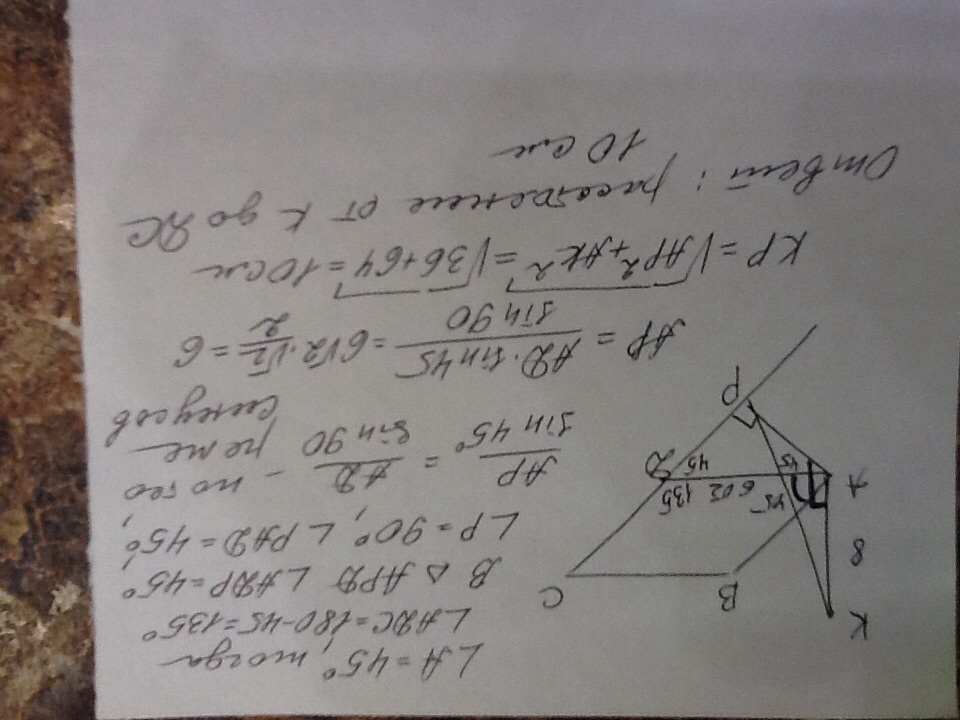 ∠A = 45°, тогда
∠ADC = 180 - 45 = 135°
В △ APD ∠ADP = 45°
∠P = 90°, ∠PAD = 45°,
AP / sin 45° = AD / sin 90 - по тео
реме
синусов
AP = AD · sin 45 / sin 90 = 6√2 · √2/2 = 6
KP = √AP² + AK² = √36 + 64 = 10 см
Ответ: расстояние от K до DC
10 см
K
8
B
C
A
45
135
6√2
D
45
45
P